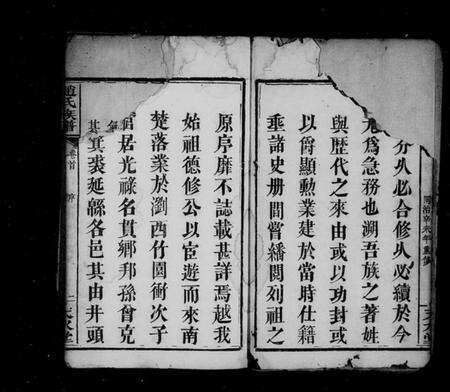 分乆必合修乆必續於今
尤為急務也溯吾族之著姓
與歷代之來由或以功封或
以爵顯勲業建於當時仕籍
垂諸史册間嘗繙閱列祖之
原序靡不誌載甚詳焉越我
始祖德修公以宦遊而來南
楚落業於瀏西竹園衝次子
居光祿名貫鄉邦孫曾克
其箕裘延緜各邑其由井頭
趙氏族譜
卷首
序